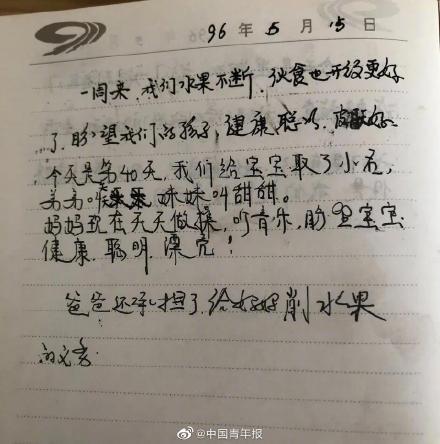 96年5月15日
一周来,我们水果不断,伙食也开始更好
了,盼望我们的孩子,健康聪明,皮肤好。
今天是第40天,我们给宝宝取了小名,
弟弟叫 妹妹叫甜甜。
妈妈现在天天做操,听音乐,盼望宝宝
健康、聪明、漂亮!
爸爸还承担了给妈妈削水果
的义务
@中国青年报